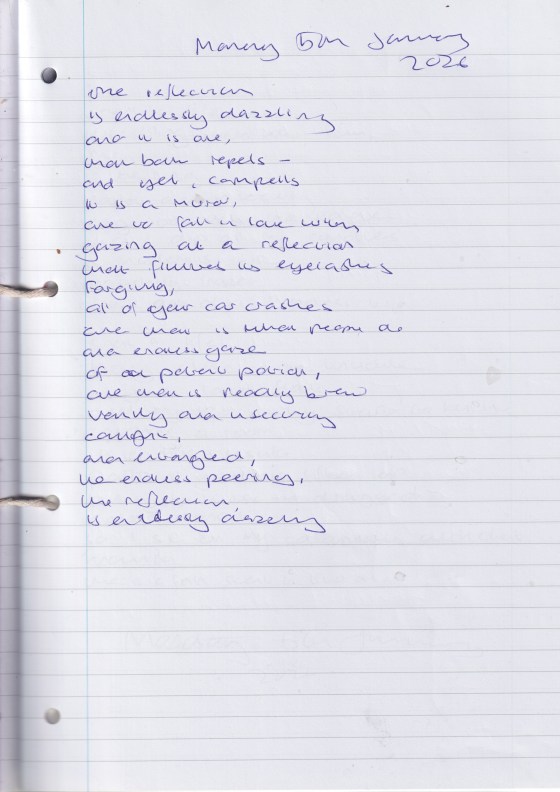 Monday 5th January
2026
the reflection
is endlessly dazzling
and it is one,
that both repels –
and yet, compells
it is a mirror,
are we fall in love with
gazing at a reflection
that flutters its eyelashes
forgiving,
all of your car crashes
and that is what people do
an endless gaze
of a potent potion,
and that is readily brew
vanity and insecurity
caught,
and entangled,
the endless peering,
the reflection
is endlessly dazzling